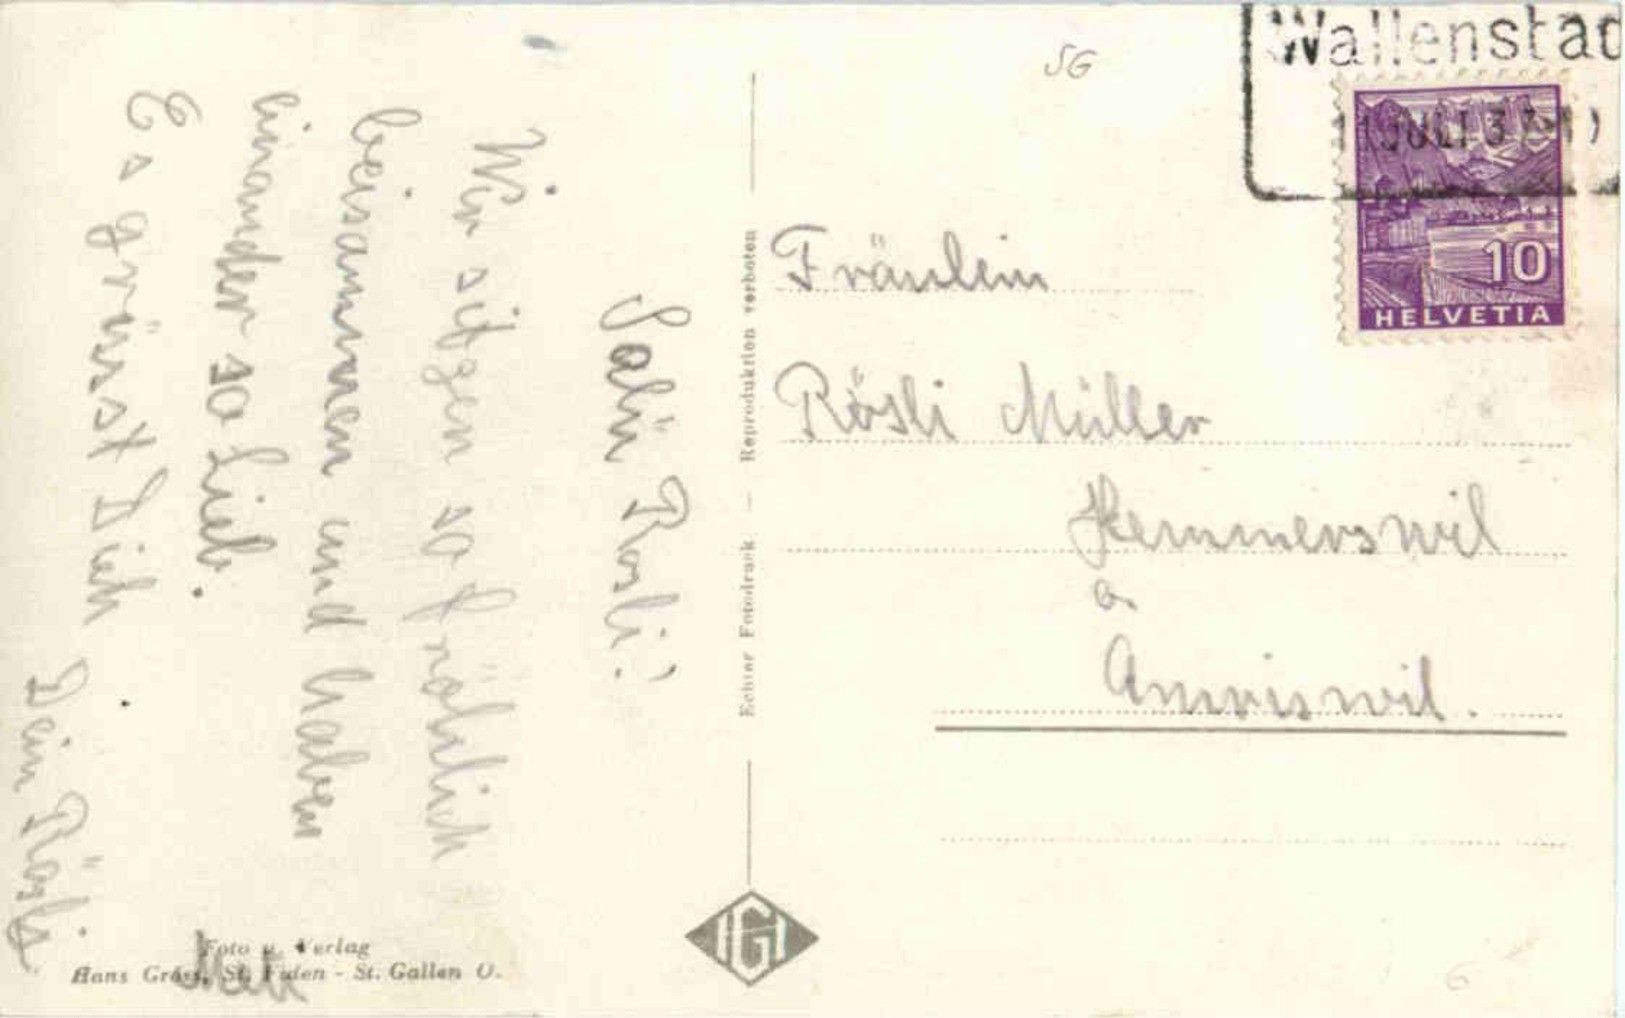 Salü Rösli!
Wir sitzen so fröhlich
beisammen und haben
einander so lieb.
Es grüsst Dich
Dein Rösli.
Foto u. Verlag
Hans Gross, St. Fiden - St. Gallen O.
Echter Fotodruck — Reproduktion verboten
IGI
SG
Wallenstad
11.JULI 37
10
HELVETIA
Fräulein
Rösli Müller
Hemmerswil
b.
Amriswil.